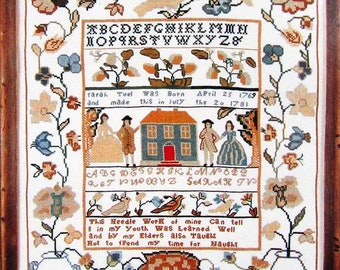 ABCDEFGHIKLMN
OPQRSTUVWXYZ&
Sarah Tuel Was Born April 25 1769
and made this in July the 20 1781
ABCDEFGHIKLMNOPQ
RSTUVWXYZ SARAH TU
This Needle Work of mine Can tell
I in my Youth Was Learned Well
and by my Elders also Taught
Not to spend my time for Naught